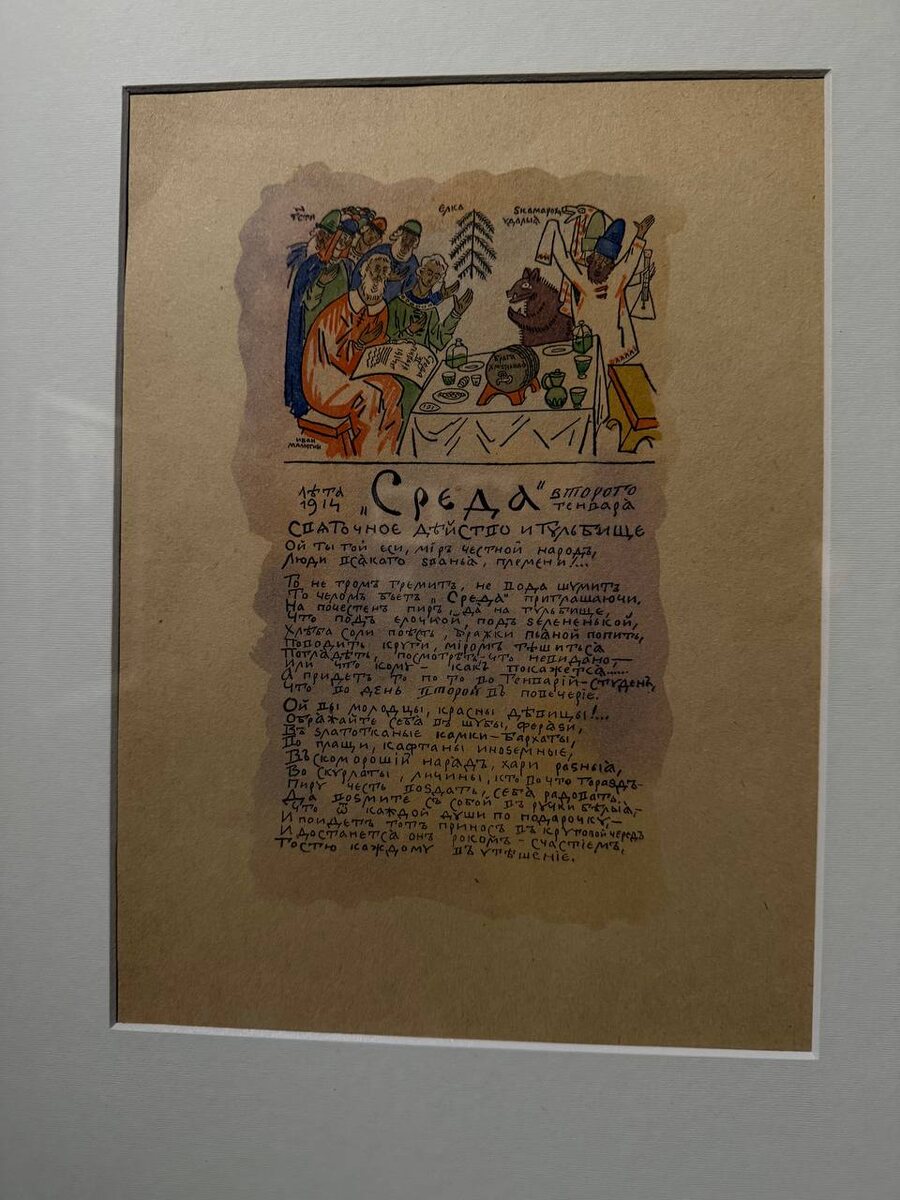 гсти
елка
ѕкаморохъ
удалыа
Среда
браги
хмѣльныа
иван
малютин
лѣта
1914
„Среда“
второго
генвара
Святочное дѣйство и гульбище
Ой ты гой еси, міръ честной народъ,
Люди всакаго ѕваньа, племени!...
То не громъ гремитъ, не вода шумитъ
То челомъ бьетъ „Среда“ приглашаючи,
На почестенъ пиръ, да на гульбище,
Что подъ елочкой, подъ ѕелененькой,
Хлѣба соли поѣсть, бражки пьаной попить,
Поводить круги, міромъ тѣшитьса
Погладѣть, посмотрѣть что невидано—
Или что кому— какъ покажетса.....
А придетъ то по го во Генварій-студенъ,
Что во день второй въ повечеріе.
Ой вы молодцы, красны дѣвицы!...
Ображайте себа въ шубы, фераѕи,
Въ ѕлатотканые камки-бархаты,
Во плащи, кафтаны иноѕемные,
Въ скоморошій нарадъ, хари раѕныіа,
Во скурлаты, личины, кто по что гораѕдъ—
Пиру честь воѕдать, себа радовать.
Да воѕмите съ собой въ ручки бѣлыіа—
Что ѿ каждой души по подарочку,—
И пойдетъ тотъ приносъ въ круговой чередъ
И достанетса онъ рокомъ-счастіемъ,
Гостю каждому въ утѣшеніе.